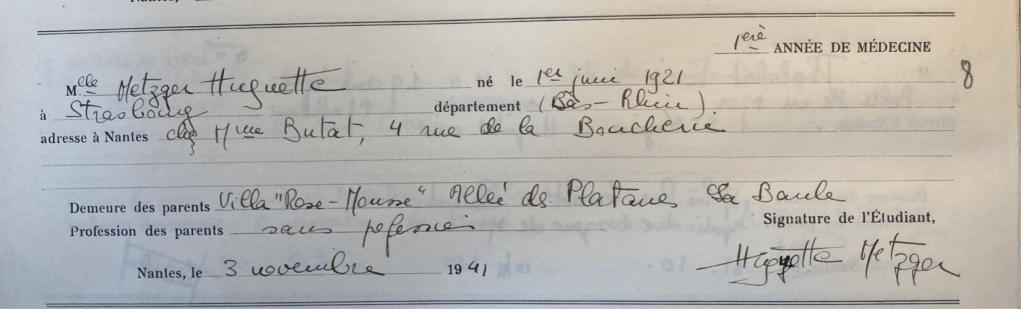 Nantes,
1erè ANNÉE DE MÉDECINE
8
Mlle Metzger Huguette né le 1er juin 1921
à Strasbourg département (Bas-Rhin)
adresse à Nantes chez Mme Butat, 4 rue de la Boucherie
Demeure des parents Villa "Rose-Mousse" Allée des Platanes La Baule
Profession des parents sans profession
Signature de l'Étudiant,
Nantes, le 3 novembre 1941
Huguette Metzger